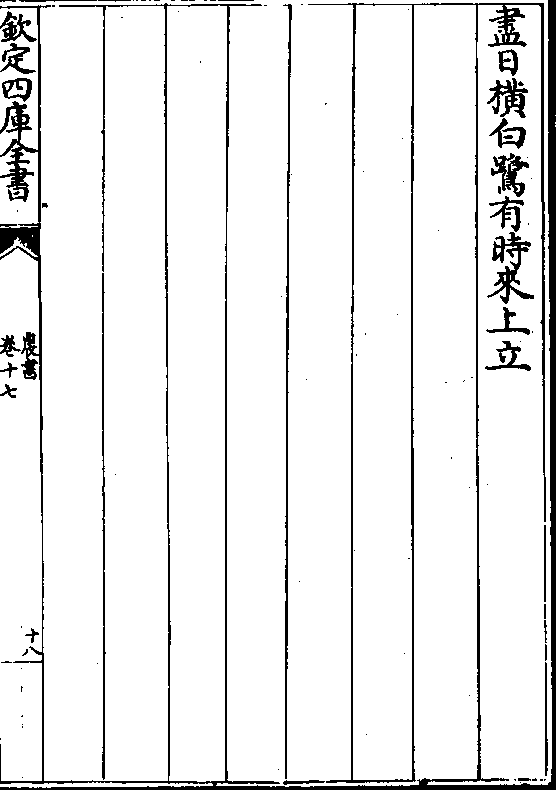 盡日橫白鷺有時來上立
欽定四庫全書
農書
卷十七
十八